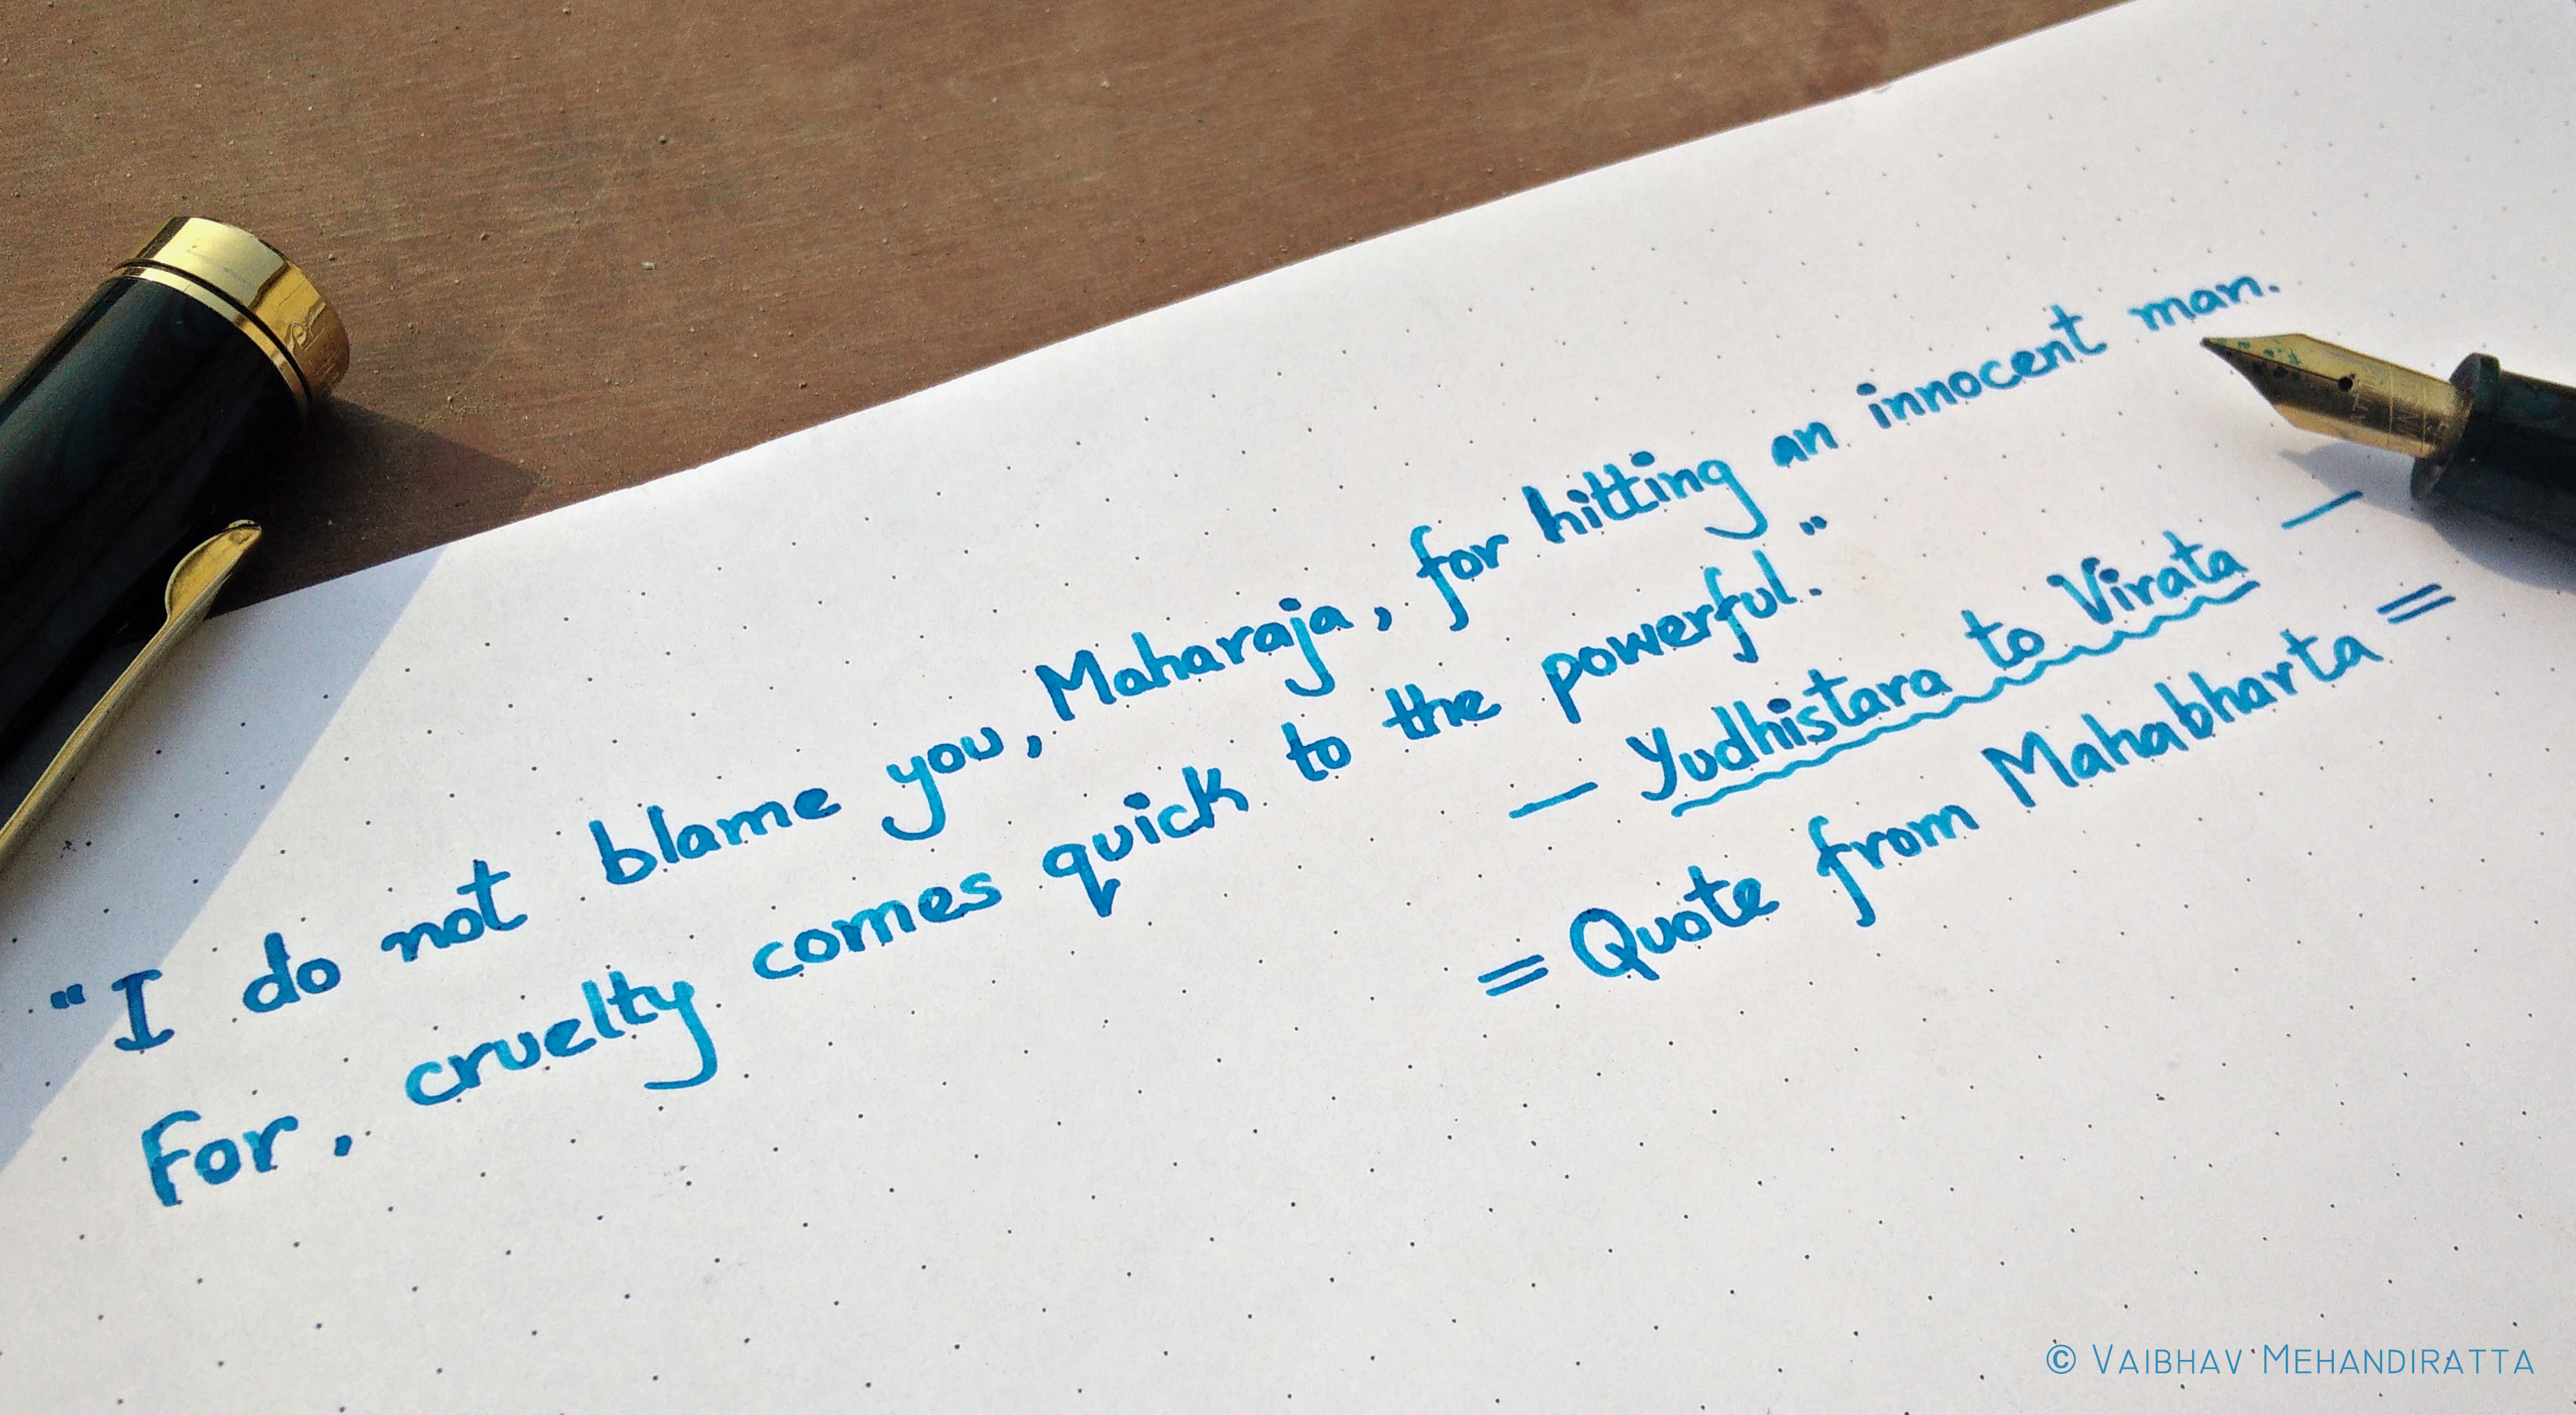 "I do not blame you, Maharaja, for hitting an innocent man.
For, cruelty comes quick to the powerful."
— Yudhistara to Virata —
= Quote from Mahabharta =
© VAIBHAV MEHANDIRATTA